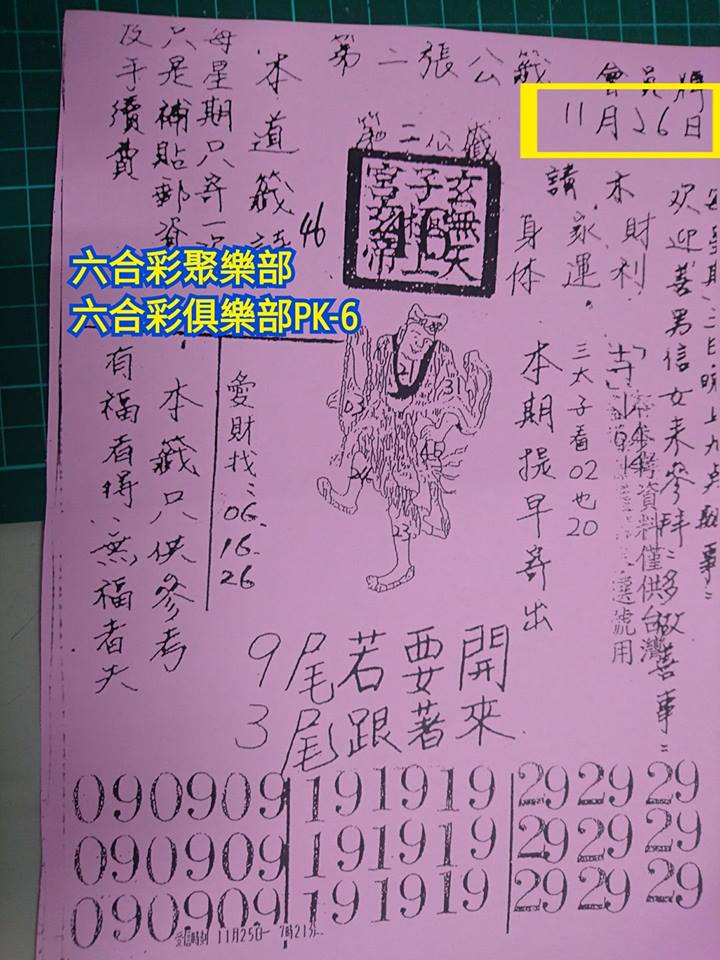 第二張公籤
會員牌
11月26日
每星期只寄一次
只是補貼郵資
及手續費
本道籤詩
46
第二公籤
玄無天
子極上
宮玄帝
請木
財利
家運
身体
欢迎善男信女来參拜
多做善事
本期提早寄出
三太子看02也20
資料僅供台灣
選號用
六合彩聚樂部
六合彩俱樂部PK-6
愛財找:
06-
16-
26
本籤只供參考
有福者得 無福者失
21
31
03
24
23
9尾若要開
3尾跟著來
090909 191919 292929
090909 191919 292929
090909 191919 292929
受信時刻 11月25日 7時21分